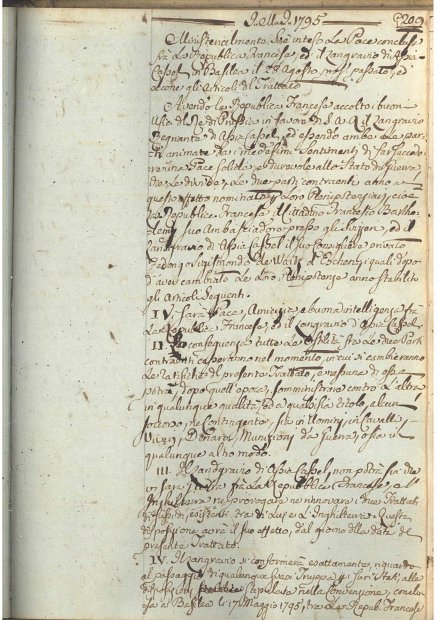 Nell'A. 1795 209
Ministerialmente si è inteso la Pace conclusa
fra la Repubblica Francese, ed il Langravio di Assia
Cassel di Basilea il 28 Agosto, pass.o, ed
eccone gli Articoli del Trattato
Avendo la Repubblica Francese accolti i buoni
del Re di Prussia in favore di S. A. il Langravio
Regnante di Assia Cassel, ed essendo ambe le par-
ti animate da' medesimi Sentimenti di far succede-
re una Pace solida, e durevole allo Stato di Guerra
che le divide, le due parti contraenti anno a
quest'effetto nominato i loro Plenipotenziarj, cioè
la Repubblica Francese il Cittadino Francesco Barthe-
lemy suo Ambasciadore presso gli Svizzeri, ed il
Landgravio di Assia Cassel il suo Consigliere privato
Sigismondo de Waitz d'Eschen, i quali dopo
d'aver cambiato le loro Plenipotenze anno stabilito
gli Articoli Seguenti.
Sarà Pace, Amicizia e buona intelligenza fra
la Repubblica Francese, ed il Langravio d'Assia Cassel
II. In conseguenza tutte le Ostilità fra le due Parti
contraenti cesseranno nel momento, in cui si cambieranno
le ratifiche del presente Trattato, e nessuna di esse
potrà, dopo quell'epoca, somministrare contro l'altra
in qualunque qualità, ed a qualsisia titolo, alcun
soccorso, nè Contingente, sia in Uomini, in Cavalli,
Viveri, Denari, Munizioni da Guerra, o sia in
qualunque altro modo.
III. Il Landgravio di Assia Cassel, non potrà fin che
vi sarà Guerra fra la Repubblica Francese, e l'
Inghilterra nè prorogare nè rinnovare i due Trattati
di Sussidj, esistenti tra di Lui e l'Inghilterra. Questa
disposizione avrà il suo effetto, dal giorno della data del
presente Trattato.
IV. Il Langravio si conformerà esattamente, riguardo
al passaggio di qualunque siasi Truppa pe' suoi Stati, alle
disposizioni nella Convenzione, conclu-
sa a Basilea li 17 Maggio 1795, tra la Repub. Francese